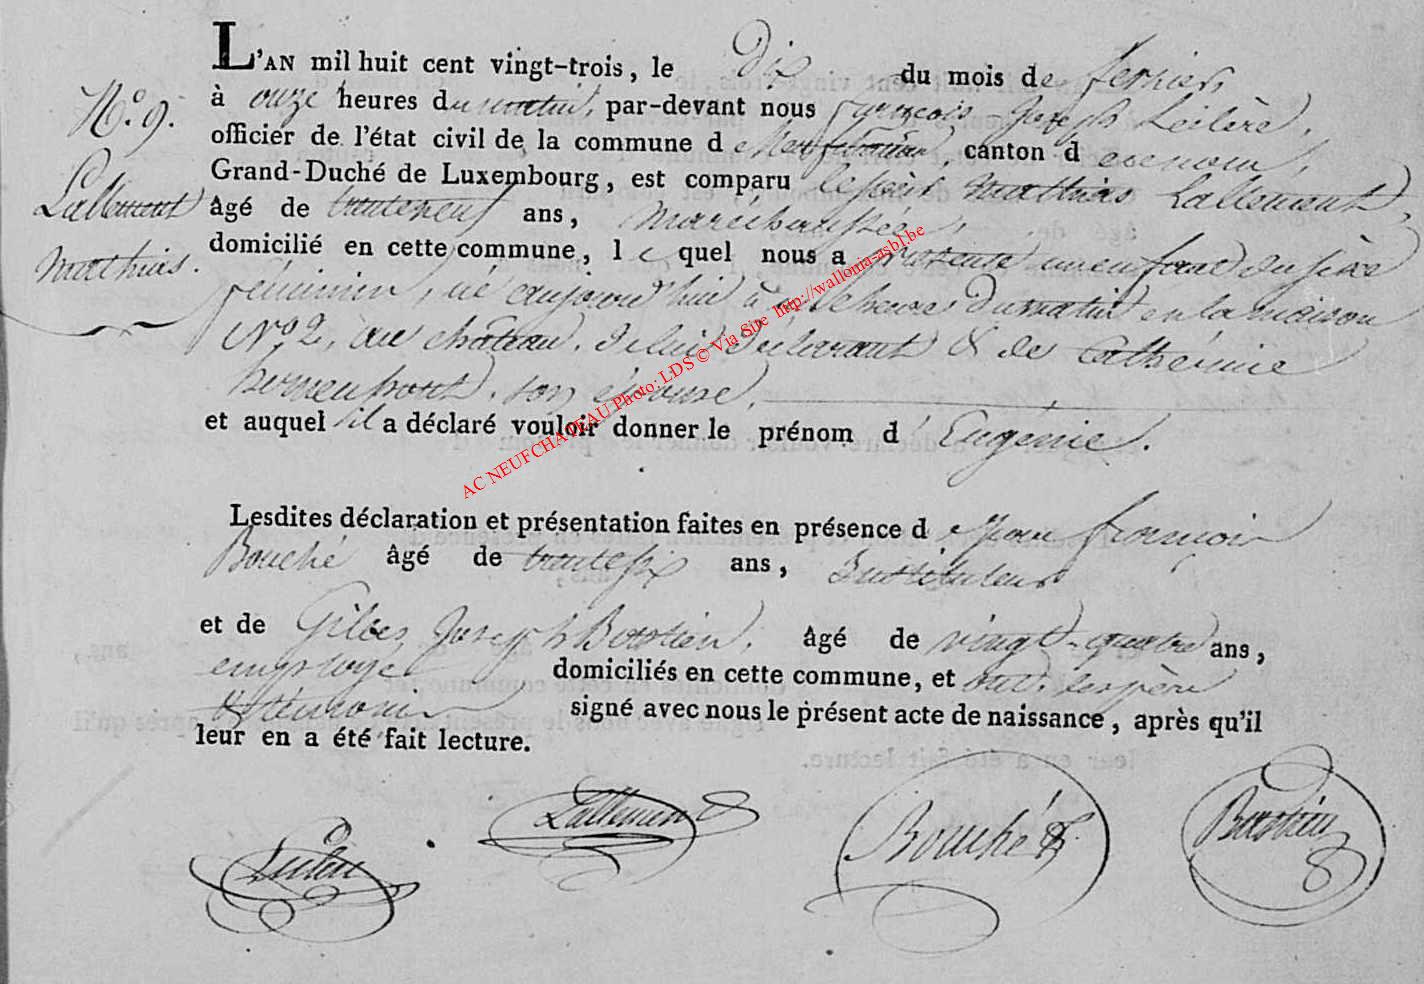 L'AN mil huit cent vingt-trois, le Dix du mois de fevrier,
N.° 9. à onze heures du matin, par-devant nous françois Joseph Leclère,
officier de l'état civil de la commune de Neufchateau, canton d
Grand-Duché de Luxembourg, est comparu le père Mathias Lallement,
Lallement âgé de trente neuf ans, maréchaussée,
domicilié en cette commune, le quel nous a présenté un enfant du sexe
Mathias. féminin, né aujourd'hui à heure du matin en la maison
N.° 2, au château, de lui déclarant & de Cathérine
son épouse,
et auquel il a déclaré vouloir donner le prénom d'Eugénie.
AC NEUFCHATEAU Photo: LDS © Via Site http://wallonia-asbl.be
Lesdites déclaration et présentation faites en présence de Jean françois
Bouché âgé de trente six ans, Instituteur
et de Gilles Joseph Bastien, âgé de vingt-quatre ans,
employé domiciliés en cette commune, et ont, les père
& témoins signé avec nous le présent acte de naissance, après qu'il
leur en a été fait lecture.
Lallement
Bouché
Bastien